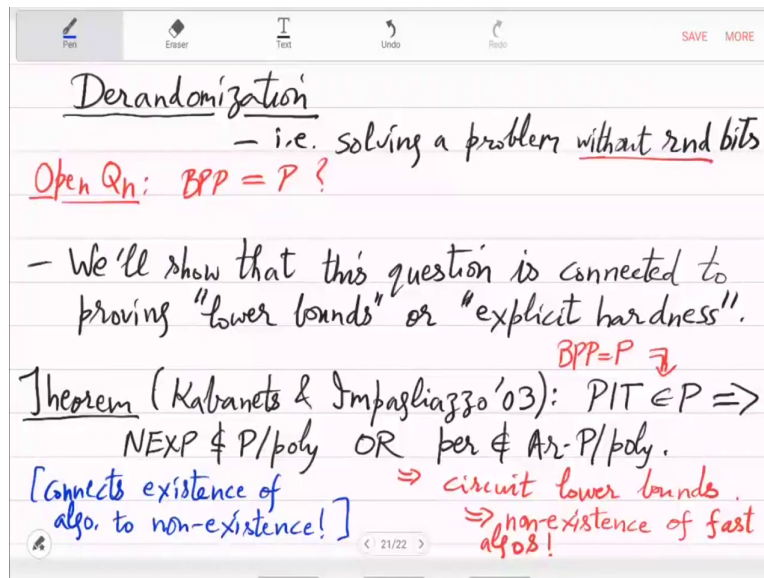 Pen Eraser Text Undo Redo SAVE MORE
Derandomization
– i.e. solving a problem without rnd bits
Open Qn: BPP = P ?
– We'll show that this question is connected to
proving "lower bounds" or "explicit hardness".
BPP=P ⇒
Theorem (Kabanets & Impagliazzo'03): PIT ∈ P =>
NEXP ⊄ P/poly OR per ∉ Ar-P/poly.
[Connects existence of
algo. to non-existence!]
⇒ circuit lower bounds.
⇒ non-existence of fast
algos!
< 21/22 >